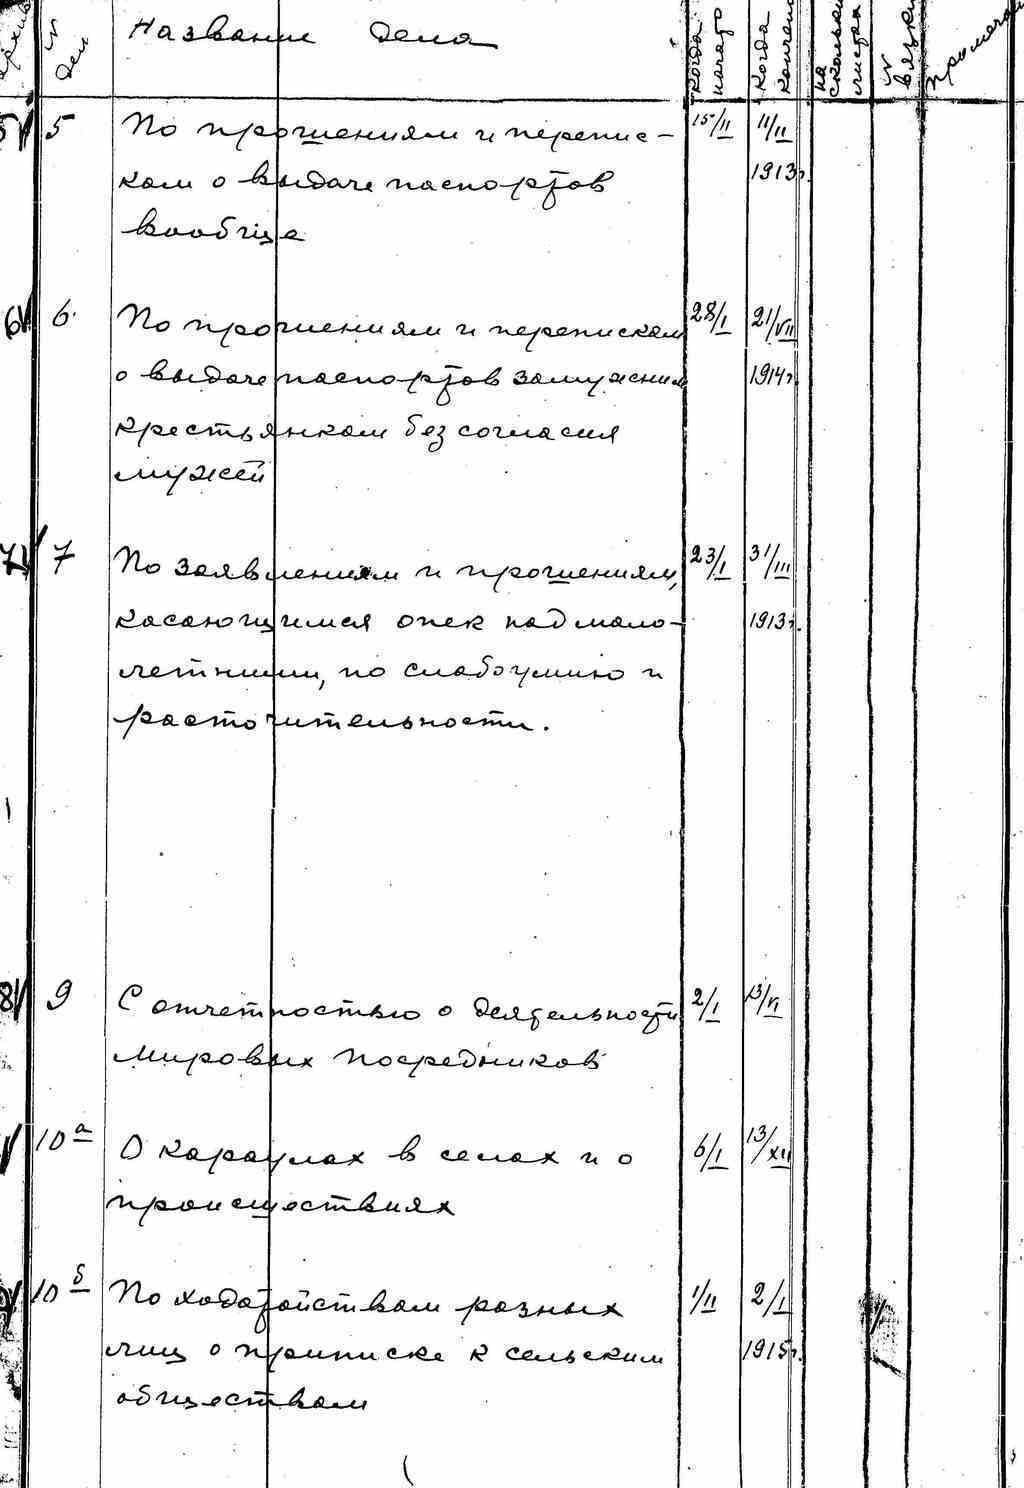 № дел
Название дела
когда начато
когда кончено
на скольки листах
№ вязки
5 5 По прошениям и перепис- 15/II 11/II
кам о выдаче паспортов 1913г.
вообще
6 6. По прошениям и перепискам 28/I 21/VII
о выдаче паспортов замужним 1914г.
крестьянкам без согласия
мужей
7 7 По заявлениям и прошениям, 23/I 31/III
касающимся опек над мало- 1913г.
летними, по слабоумию и
расточительности.
8 9 С отчетностью о деятельности 2/I 13/VI
Мировых Посредников
10а О караулах в селах и о 6/I 13/XII
происшествиях
10б По ходатайствам разных 1/II 2/I
лиц о приписке к сельским 1915г.
обществам